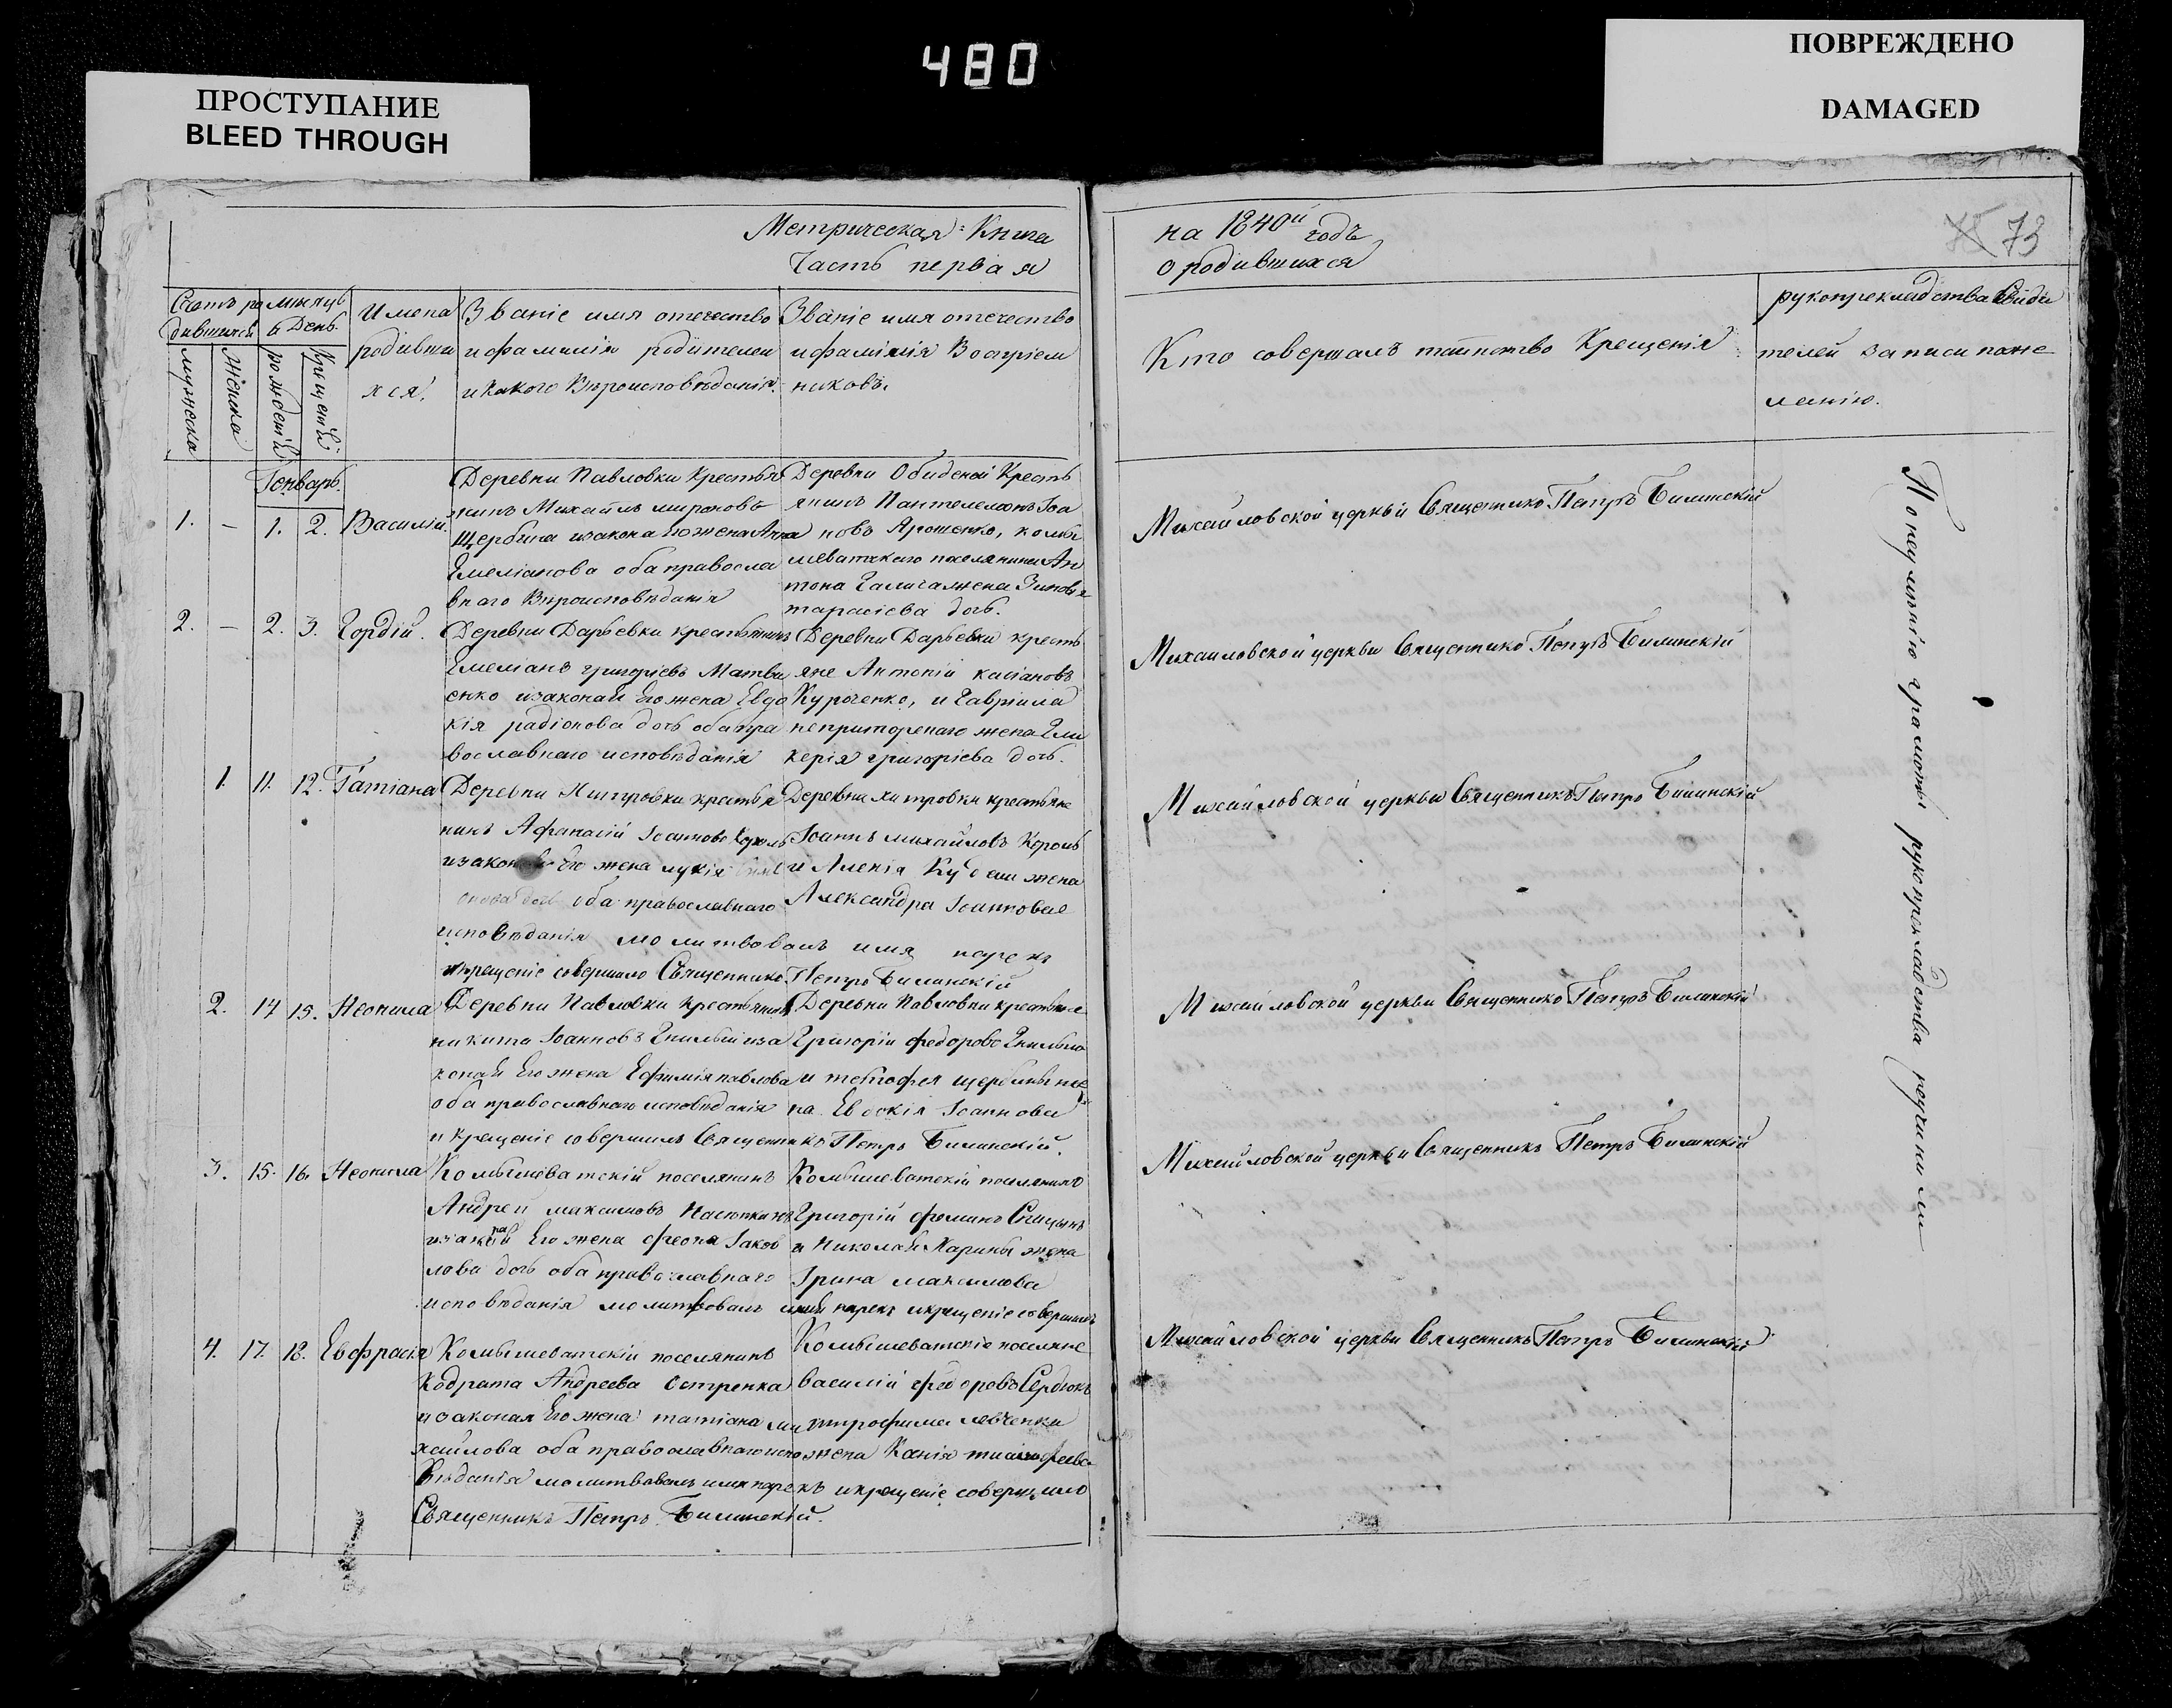 480
ПРОСТУПАНИЕ
BLEED THROUGH
ПОВРЕЖДЕНО
DAMAGED
Метрическая Книга
Часть первая
на 1840й годъ
о родившихся
73
Счетъ родившихся
мужеска
женска
месяцъ и день
рождения
крещения
Имена
родивши
хся.
Званіе имя отечество
и фамилія родителей
и какого вѣроисповѣданія.
Званіе имя отечество
и фамилія Воспріем
никовъ.
Кто совершалъ таинство Крещенія
рукоприкладства Свиде
телей записи поже
ланію.
Генварь.
1. – 1. 2. Василій.
Деревни Павловки Крестья
нинъ Михаилъ мироновъ
Щербина изаконна его жена Анна
Емеліанова оба правосла
внаго Вѣроисповѣданія
Деревни Обидной Кресть
янинъ Пантелемонъ Іоа
новъ Ярошенко, комы
шеватскаго поселянина Ан
тона Галича жена Зиновія
тарасіева дочь.
Михайловской церкви Священникъ Петръ Билинскій
2. – 2. 3. Гордій.
Деревни Дарьевки крестьянинъ
Емеліанъ григоріевъ Матви
енко изаконая Его жена Евдо
кія радіонова дочь оба пра
вославнаго исповѣданія
Деревни Дарьевки кресть
яне Антоній касіановъ
Курченко, и Гавріила
непритореннаго жена Гли
керія григоріева дочь.
Михайловской церкви Священникъ Петръ Билинскій
1. 11. 12. Татіана
Деревни Хитровки крестья
нинъ Афанасій Іоанновъ Король
его жена лукія
дочь оба православнаго
исповѣданія молитвовалъ имя нарекъ
икрещеніе совершилъ Священникъ Петръ Билинскій
Деревни хитровки крестьяне
Іоаннъ михайловъ Король
и жена
Александра Іоаннова
Михайловской церкви Священникъ Петръ Билинскій
2. 14 15. Неонила
Деревни Павловки крестьянинъ
никита Іоанновъ изa
коная Его жена Ефимія павлова
оба православнаго исповѣданія
и крещеніе совершилъ Священникъ Петръ Билинскій.
Деревни Павловки крестьяне
Григорій федоровъ
и тимофея щербины же
на Евдокія Іоаннова
Михайловской церкви Священникъ Петръ Билинскій
3. 15. 16. Неонила
Комышеватскій поселянинъ
Андрей максимовъ
Его жена Іаков
лова дочь оба православнаго
исповѣданія молитвовалъ имя нарекъ икрещеніе совершилъ
Комышеватскій поселянинъ
Григорій фоминъ
и Николая жена
Ірина максимова
Михайловской церкви Священникъ Петръ Билинскій
4. 17. 18. Евфрасія
Комышеватскій поселянинъ
Кодрата Андреева
изаконая Его жена татіана ми
хайлова оба православнаго испо
вѣданія молитвовалъ имя нарекъ икрещеніе совершилъ
Священникъ Петръ Билинскій.
Комышеватскіе поселяне
василій федоровъ Сердюкъ
митрофима левченка
жена Ксенія тимофеева
Михайловской церкви Священникъ Петръ Билинскій
По неумѣнію грамоты рукоприкладства неучинили